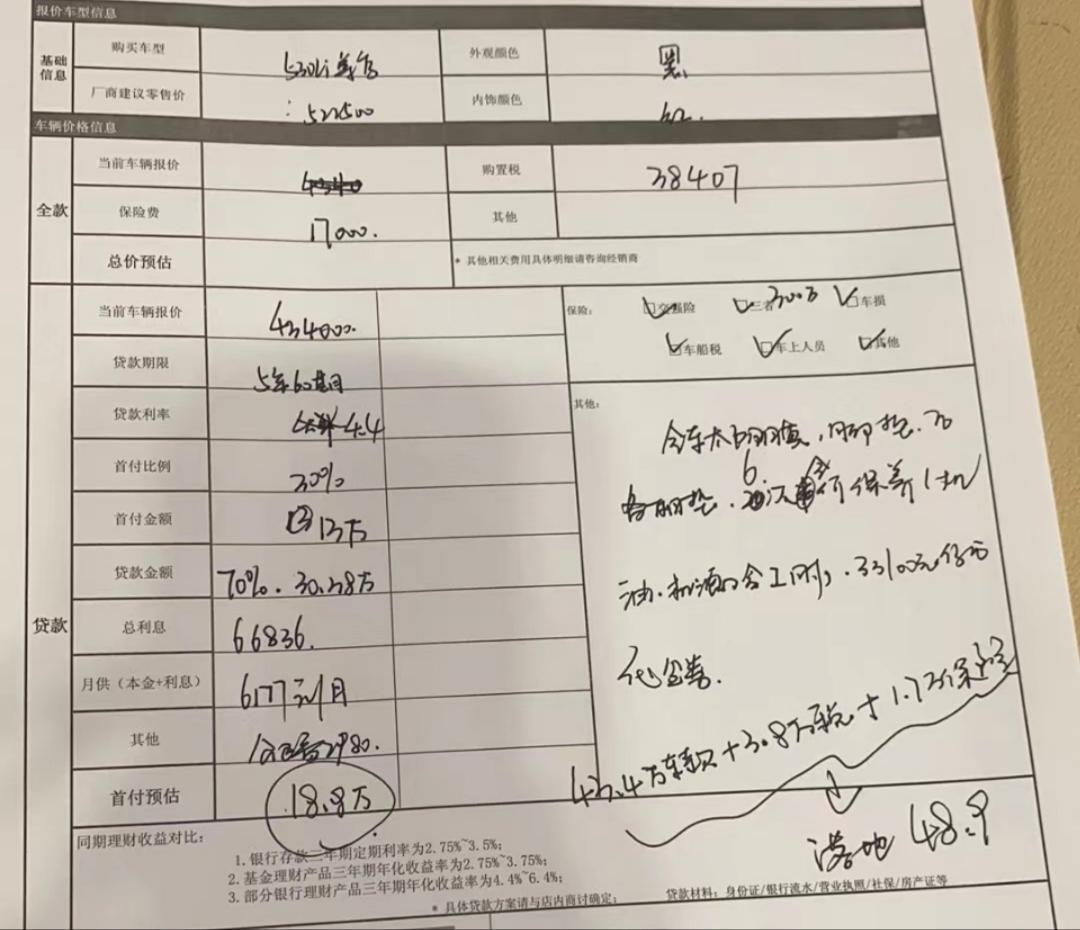 报价车型信息
基础信息
购买车型 530Li 尊享 外观颜色 黑
厂商建议零售价 :522500 内饰颜色 红.
车辆价格信息
全款
当前车辆报价 购置税 38407
保险费 17000. 其他
总价预估 * 其他相关费用具体明细请咨询经销商
贷款
当前车辆报价 434000.
保险: 交强险 三者300万 车损
车船税 车上人员 其他
贷款期限 5年60期
贷款利率 4.4
首付比例 30%
首付金额 13万
贷款金额 70%. 30.38万
总利息 66836.
月供(本金+利息) 6177元/月
其他 2980.
首付预估 18.8万
其他:
全车太阳膜,脚垫.
6次 保养(机
油.机滤)含工时,.33100元
43.4万车款+3.8万税+1.7万保险
落地 48.9
同期理财收益对比:
1. 银行存款三年期定期利率为2.75%~3.5%;
2. 基金理财产品三年期年化收益率为2.75%~3.75%;
3. 部分银行理财产品三年期年化收益率为4.4%~6.4%;
* 具体贷款方案请与店内商讨确定;
贷款材料:身份证/银行流水/营业执照/社保/房产证等